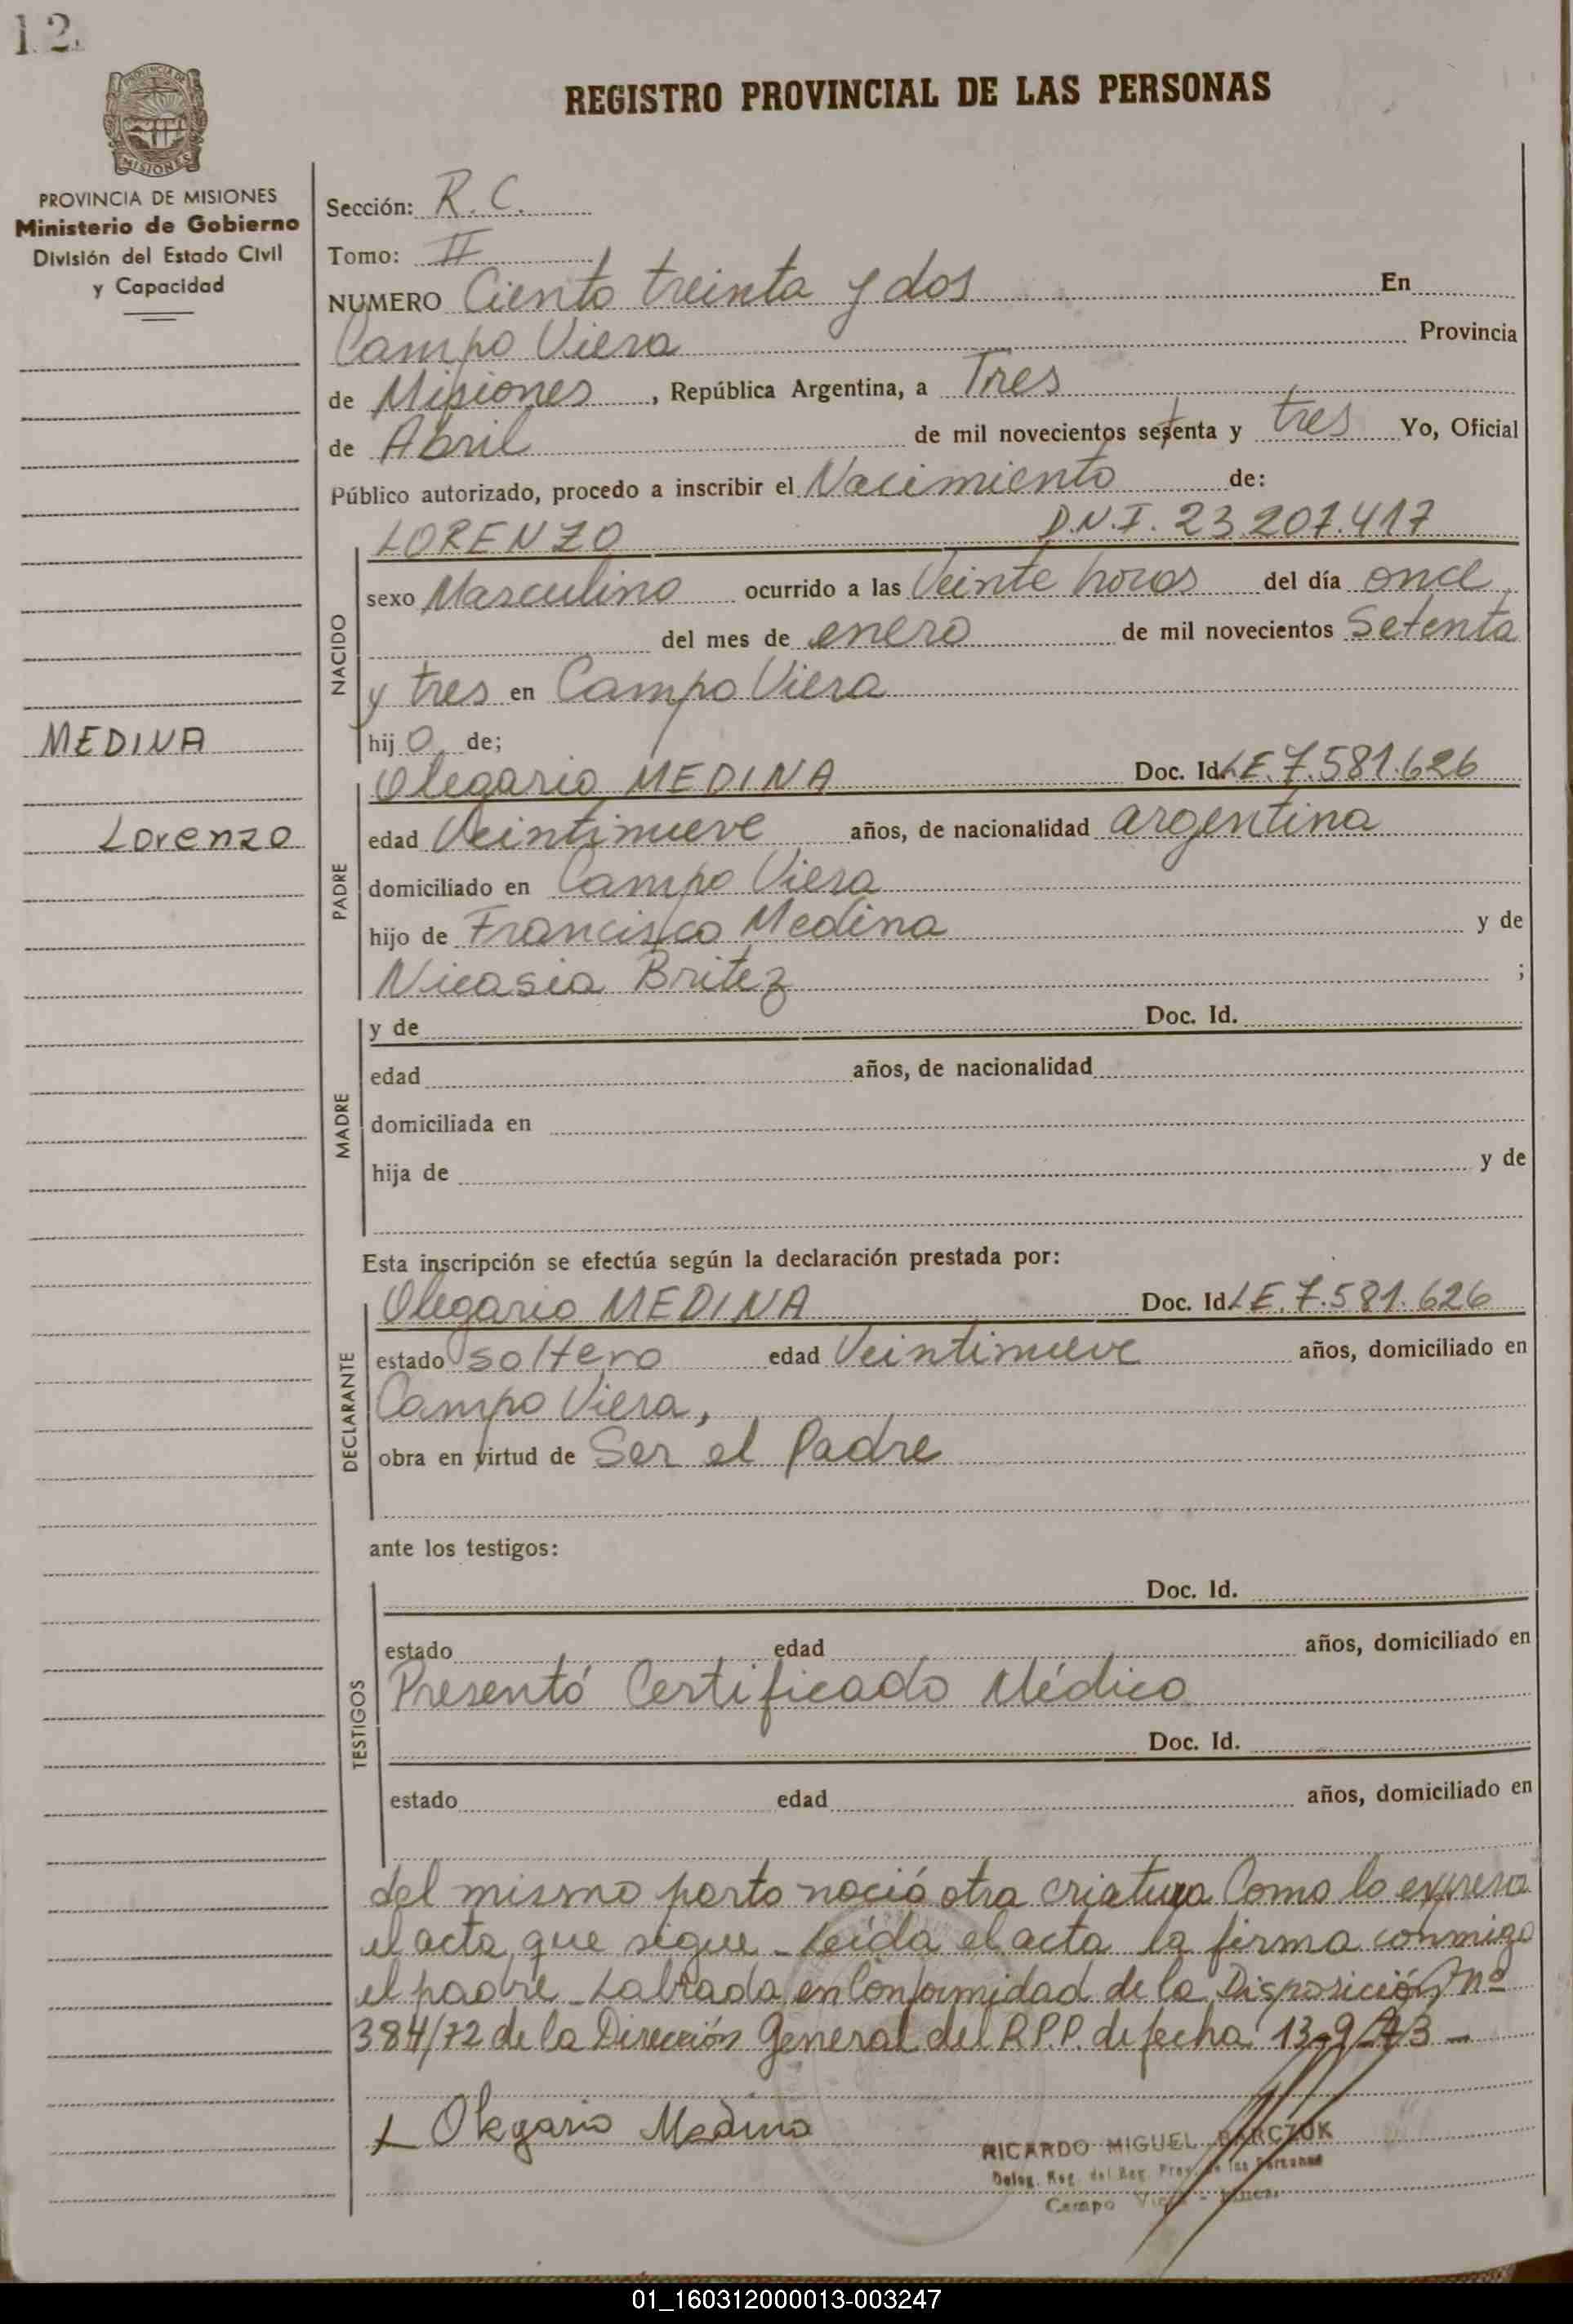 12.
PROVINCIA DE
MISIONES
PROVINCIA DE MISIONES
Ministerio de Gobierno
División del Estado Civil
y Capacidad
MEDINA
Lorenzo
REGISTRO PROVINCIAL DE LAS PERSONAS
Sección: R. C.
Tomo: II
NUMERO Ciento treinta y dos En
Campo Viera Provincia
de Misiones , República Argentina, a Tres
de Abril de mil novecientos setenta y tres Yo, Oficial
Público autorizado, procedo a inscribir el Nacimiento de:
LORENZO D.N.I. 23.207.417
NACIDO
sexo Masculino ocurrido a las Veinte horas del día once
del mes de enero de mil novecientos Setenta
y tres en Campo Viera
hij o de;
PADRE
Olegario MEDINA Doc. Id. LE. 7.581.626
edad Veintinueve años, de nacionalidad argentina
domiciliado en Campo Viera
hijo de Francisco Medina y de
Nicasia Britez ;
MADRE
y de Doc. Id.
edad años, de nacionalidad
domiciliada en
hija de y de
Esta inscripción se efectúa según la declaración prestada por:
DECLARANTE
Olegario MEDINA Doc. Id. LE. 7.581.626
estado soltero edad Veintinueve años, domiciliado en
Campo Viera,
obra en virtud de Ser el Padre
ante los testigos:
TESTIGOS
Doc. Id.
estado edad años, domiciliado en
Presentó Certificado Médico
Doc. Id.
estado edad años, domiciliado en
del mismo parto nació otra criatura Como lo expresa
el acta que sigue - Leída el acta la firma conmigo
el padre - Labrada en Conformidad de la Disposición nº
384/72 de la Dirección General del R.P.P. de fecha 13-9-73 -
x Olegario Medina
RICARDO MIGUEL BARCZUK
Deleg. Reg. del Reg. Prov. de las Personas
Campo Viera -
01_160312000013-003247